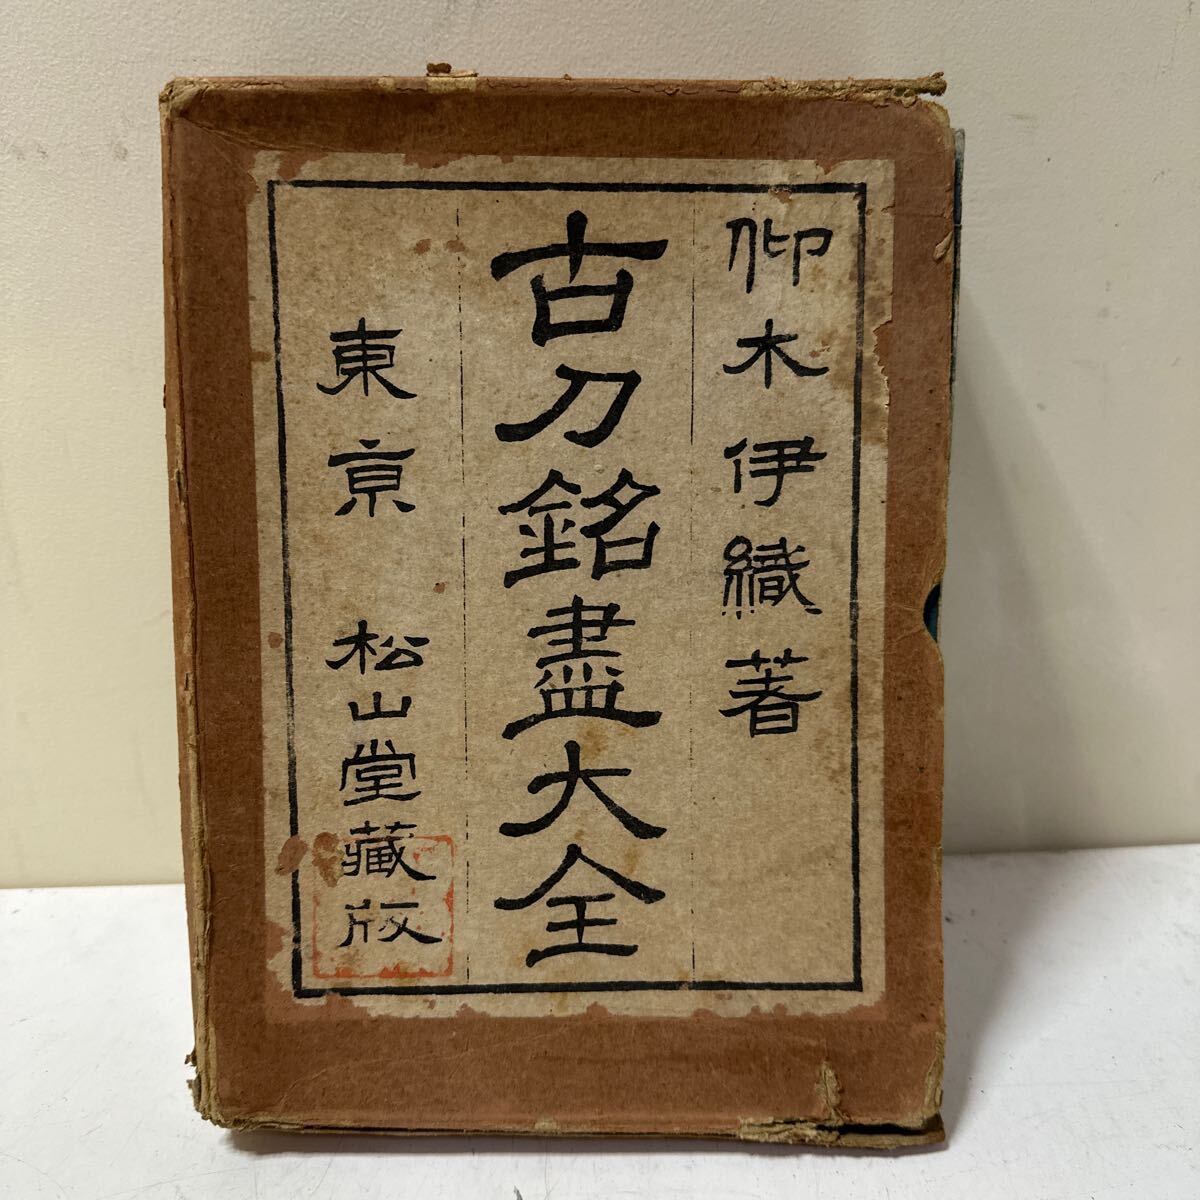 仰木伊織著
古刀銘盡大全
東京 松山堂藏版